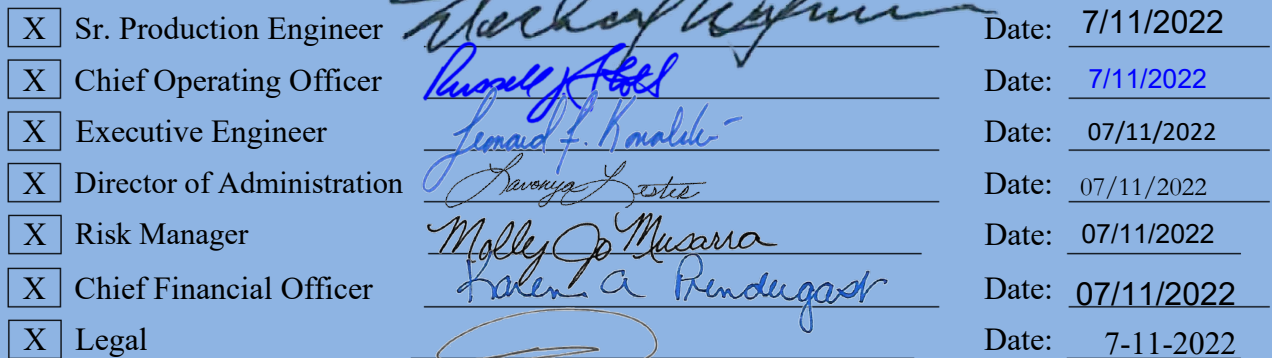 X Sr. Production Engineer Date: 7/11/2022
X Chief Operating Officer Russell J Date: 7/11/2022
X Executive Engineer Leonard F. Date: 07/11/2022
X Director of Administration Lavonya Lester Date: 07/11/2022
X Risk Manager Molly Jo Musarra Date: 07/11/2022
X Chief Financial Officer Karen A Prendergast Date: 07/11/2022
X Legal Date: 7-11-2022